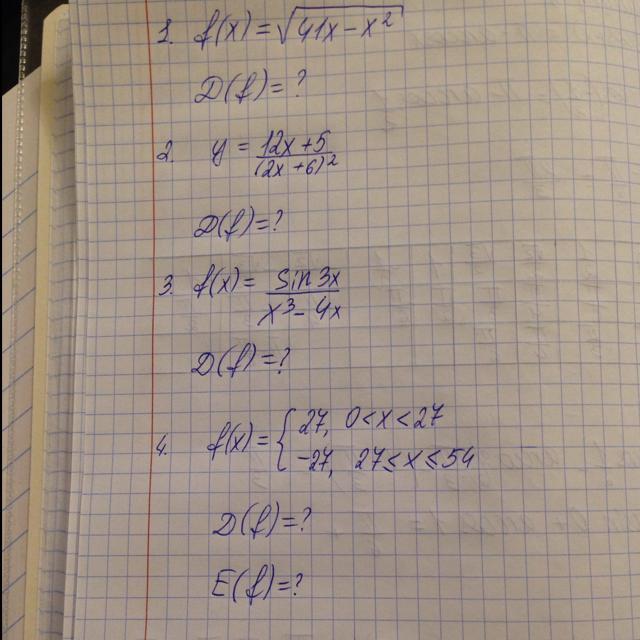 1. f(x) = √(41x − x²)
D(f) = ?
2. y = (12x + 5)/(2x + 6)²
D(f) = ?
3. f(x) = sin 3x/(x³ − 4x)
D(f) = ?
4. f(x) = { 27, 0 < x < 27
−27, 27 ≤ x ≤ 54
D(f) = ?
E(f) = ?